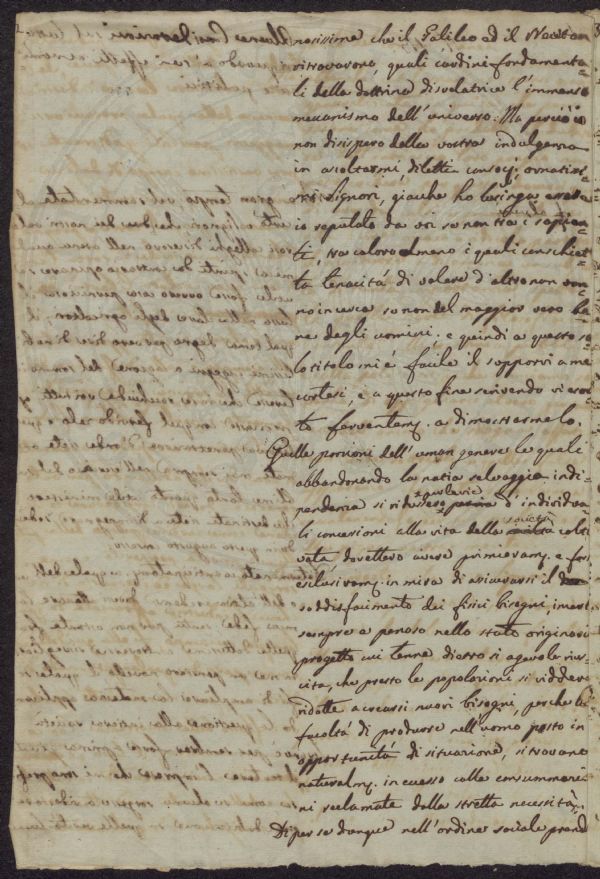 nosissime che il Galileo ed il Newton
ritrovarono, quali cardini fondamenta=
li della dottrina disvelatrice l'immenso
meccanismo dell'universo. Ma perciò io
non dispero della vostra indulgenza
in ascoltarmi, diletti consocj, ornatissi=
mi Signori, giacchè ho lusinga
io reputato da voi se non tra i
ti, tra coloro almeno i quali con schiet=
ta tenacità di volere d'altro non
no in cerca se non del maggior vero be=
ne degli uomini; e quindi a questo so=
lo titolo mi è facile il supporvi a me
cortesi, e a questo fine scrivendo vi esor=
to ferventem. a dimostrarmelo.
Quelle porzioni dell'uman genere le quali
abbandonando la natia selvaggia indi=
pendenza si ridussero d'individua=
li concessioni alla vita della società colti=
vata, dovettero avere primieram. e
esclusivam. in mira di assicurarsi il
soddisfacimento dei fisici bisogni, incert
sempre e penoso nello stato originario
progetto cui tenne dietro sì agevole rius=
cita, che presto le popolazioni si viddero
ridotte a crearsi nuovi bisogni, perchè le
facoltà di produrre nell'uomo posto in
opportunità di situazione, si trovano
naturalm. in eccesso colle consummazio=
ni reclamate dalla stretta necessità.
Di per se dunque nell'ordine sociale prend